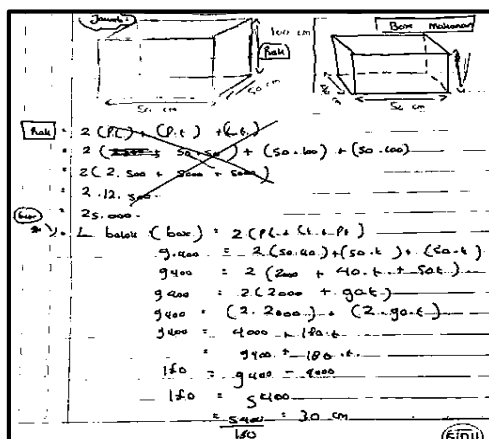 Jawab:
100 cm
Rak
50 cm
50 cm
Box Makanan
50 cm
Rak = 2 (P.L) + (P.t) + (L.t)
= 2 ( 50 + 50 ) + (50.100) + (50.100)
= 2 ( 2.500 + 5000 + 5000 )
= 2.12.500
= 25.000.
L balok (box) = 2(PL + Lt + Pt)
9.400 = 2(50.40) + (50.t) + (50.t)
9400 = 2 (2000 + 40.t + 50t)
9400 = 2(2000 + 90t)
9400 = (2.2000) + (2.90.t)
9400 = 4000 + 180.t
= 9400 = 180.t
180 = 9400 - 4000
180 = 5400
= 5400 = 30 cm
180